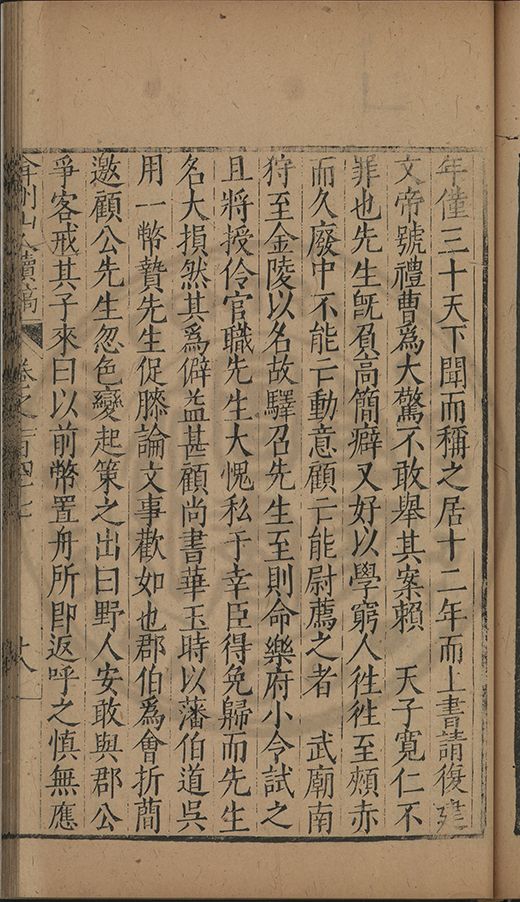 年僅三十天下聞而稱之居十二年而上書請復建
文帝號禮曹爲大驚不敢舉其案賴　天子寬仁不
罪也先生旣負高簡癖又好以學窮人徃徃至頰赤
而久廢中不能亡動意顧亡能尉薦之者　武廟南
狩至金陵以名故驛召先生至則命樂府小令試之
且將授伶官職先生大愧私于幸臣得免歸而先生
名大損然其爲僻益甚顧尚書華玉時以藩伯道吳
用一幣贄先生促膝論文事歡如也郡伯爲會折蕳
邀顧公先生忽色變起策之出曰野人安敢與郡公
爭客戒其子來曰以前幣置舟所即返呼之慎無應
弇州山人續稿　卷之一百四十七